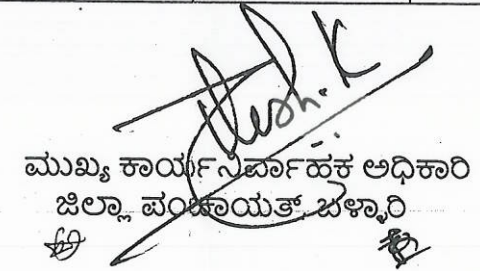 ಮುಖ್ಯ ಕಾರ್ಯನಿರ್ವಾಹಕ ಅಧಿಕಾರಿ
ಜಿಲ್ಲಾ ಪಂಚಾಯತ್, ಬಳ್ಳಾರಿ